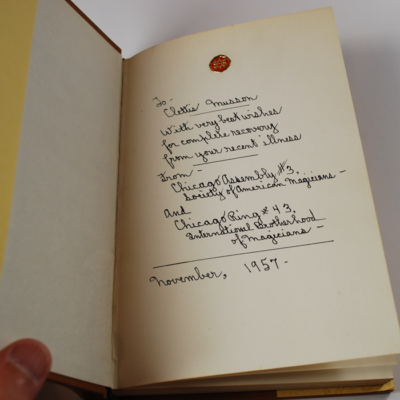 To -
Clettis Musson
With very best wishes
for complete recovery
from your recent illness
From -
Chicago Assembly #3.
Society of American Magicians -
and
Chicago Ring # 43.
International Brotherhood
of Magicians -
November, 1957 -